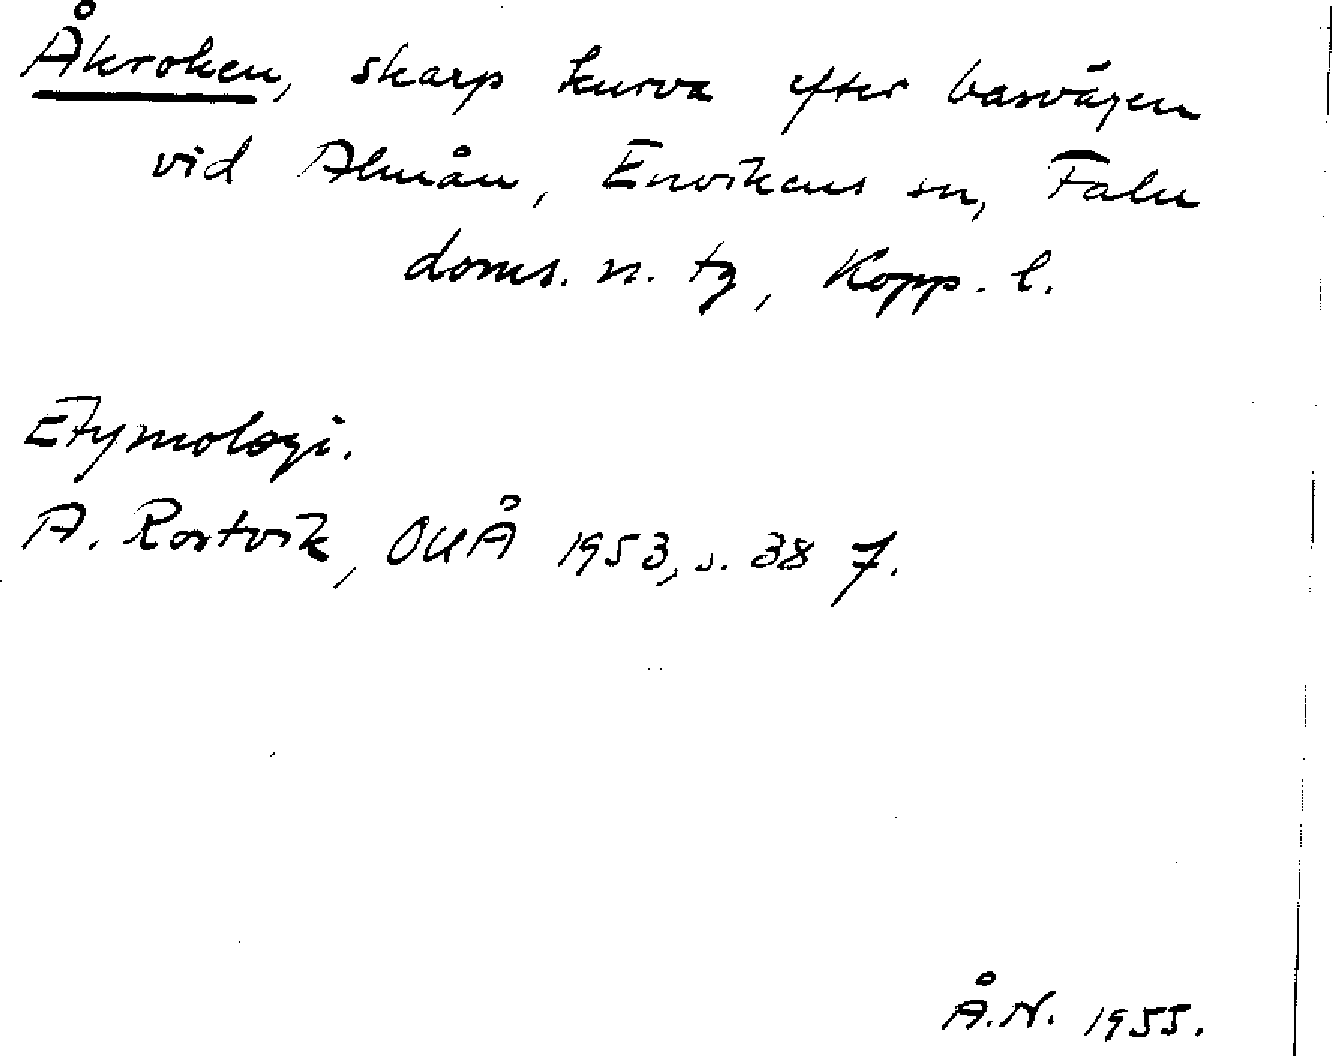 Åkroken, skarp kurva efter basvägen
vid Almån, Envikens sn, Falu
doms. n. tg, Kopp. l.
Etymologi.
A. Rostvik, OUÅ 1953, s. 38 f.
Å.N. 1955.